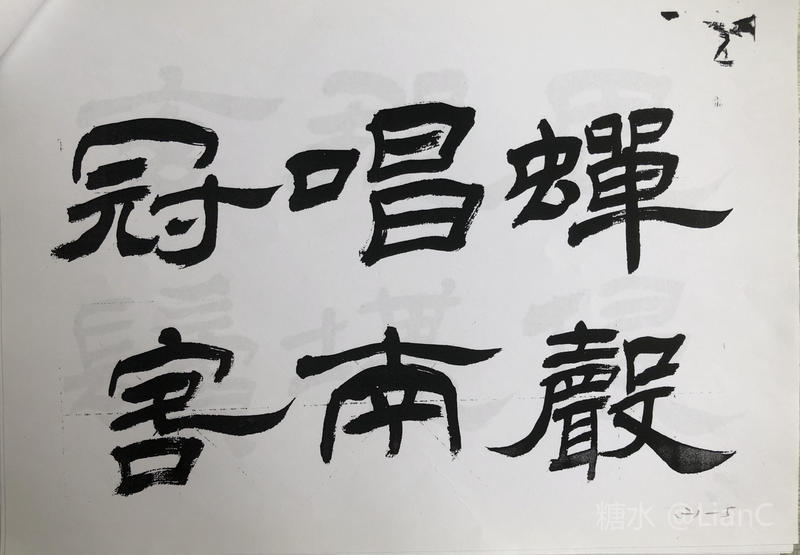 蟬聲
唱南
冠客
糖水 @LianC